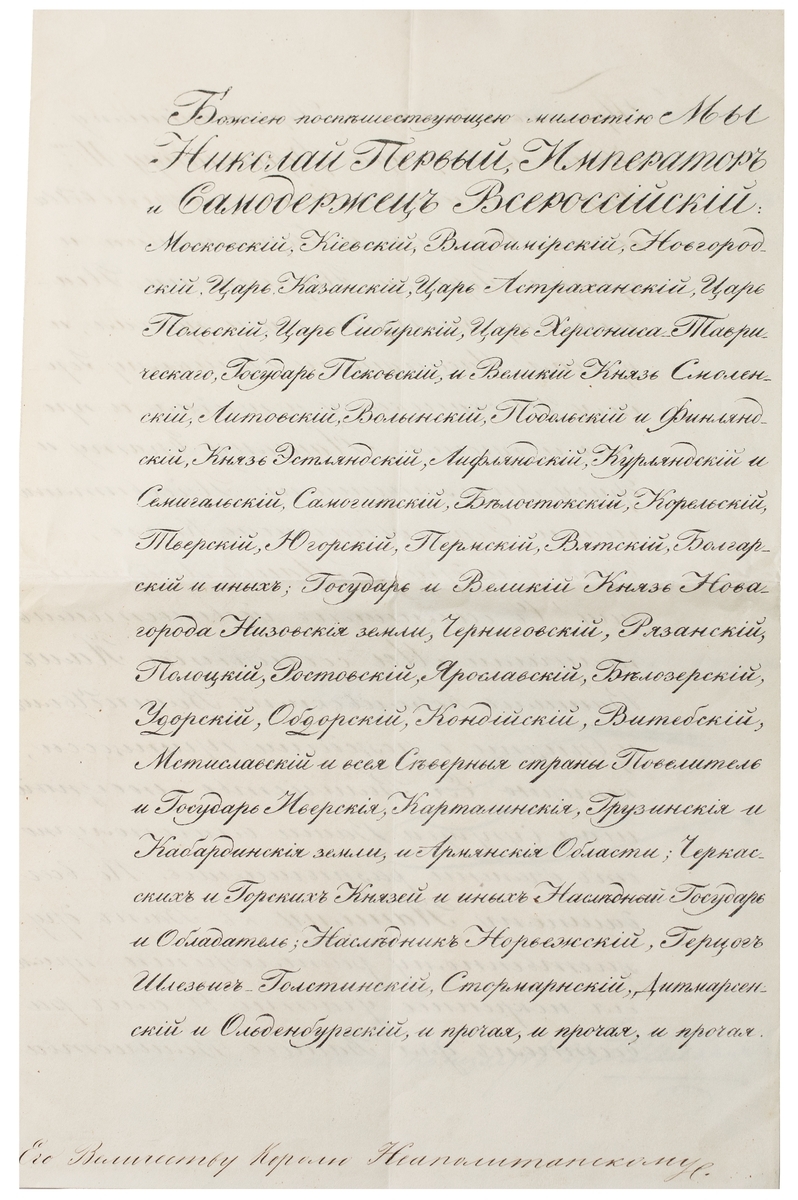 Божіею поспѣшествующею милостію Мы
Николай Первый, Императоръ
и Самодержецъ Всероссійскій:
Московскій, Кіевскій, Владимірскій, Новгород-
скій, Царь Казанскій, Царь Астраханскій, Царь
Польскій, Царь Сибирскій, Царь Херсониса-Таври-
ческаго, Государь Псковскій, и Великій Князь Смолен-
скій, Литовскій, Волынскій, Подольскій и Финлянд-
скій, Князь Эстляндскій, Лифляндскій, Курляндскій и
Семигальскій, Самогитскій, Бѣлостокскій, Корельскій,
Тверскій, Югорскій, Пермскій, Вятскій, Болгар-
скій и иныхъ; Государь и Великій Князь Нова-
города Низовскія земли, Черниговскій, Рязанскій,
Полоцкій, Ростовскій, Ярославскій, Бѣлозерскій,
Удорскій, Обдорскій, Кондійскій, Витебскій,
Мстиславскій и всея Сѣверныя страны Повелитель
и Государь Иверскія, Карталинскія, Грузинскія и
Кабардинскія земли, и Армянскія Области; Черкас-
скихъ и Горскихъ Князей и иныхъ Наслѣдный Государь
и Обладатель; Наслѣдникъ Норвежскій, Герцогъ
Шлезвигъ-Голстинскій, Стормарнскій, Дитмарсен-
скій и Ольденбургскій, и прочая, и прочая, и прочая.
Его Величеству Королю Неаполитанскому